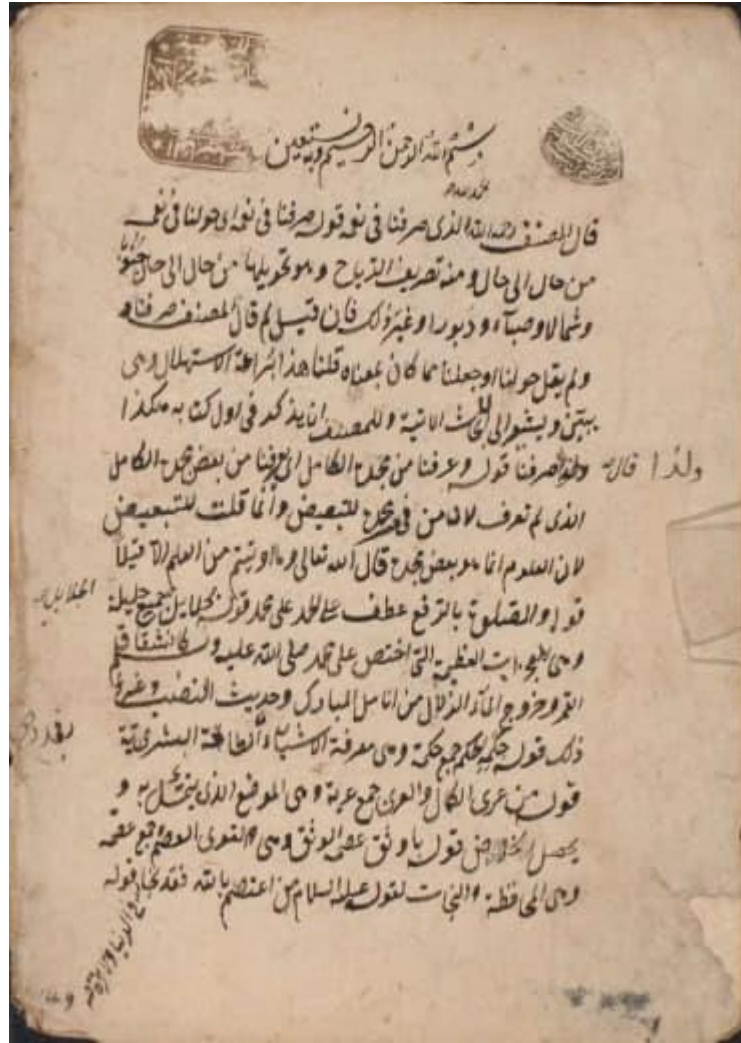 بسم الله الرحمن الرحيم وبه نستعين
قال المصنف رحمه الله الذى صرفنا فى نعمه قوله صرفنا فى نعمه اى حولنا فى نعمه
من حال الى حال ومنه تصريف الرياح وهو تحويلها من حال الى حال جنوبا
وشمالا وصباء ودبورا وغير ذلك فان قيل لم قال المصنف صرفنا و
ولم يقل حولنا او جعلنا مما كان بمعناه قلنا هذا لبراعة الاستهلال وهى
الى الابحاث الاتية وللمصنف ان يذكر فى اول كتابه هكذا
ولذا قال صرفنا قوله وعرفنا من مجده الكامل اى عرفنا من بعض مجده الكامل
الذى لم نعرف لان من فى مجده للتبعيض وانما قلت للتبعيض
لان العلوم انما هو بعض مجده قال الله تعالى وما اوتيتم من العلم الا قليلا
قوله والصلوة بالرفع عطف على الحمد على محمد قوله بجلايل جمع جليلة
الجلايل
وهى العظيمة التى اختص على محمد صلى الله عليه وسلم كانشقاق
القمر وخروج الماء الزلال من انامل المبارك وحديث الضب وغير
ذلك قوله حكمه الحكم جمع حكمة وهى معرفة الاشياء الطاقة البشرية
بقدر
قوله من عرى الكمال والعرى جمع عروة وهى الموضع الذى به و
يحصل قوله باوثق عصم الوثق وهى القوى العصم جمع عصمة
وهى المحافظة والنجات لقوله عليه السلام من اعتصم بالله فقد نجا قوله